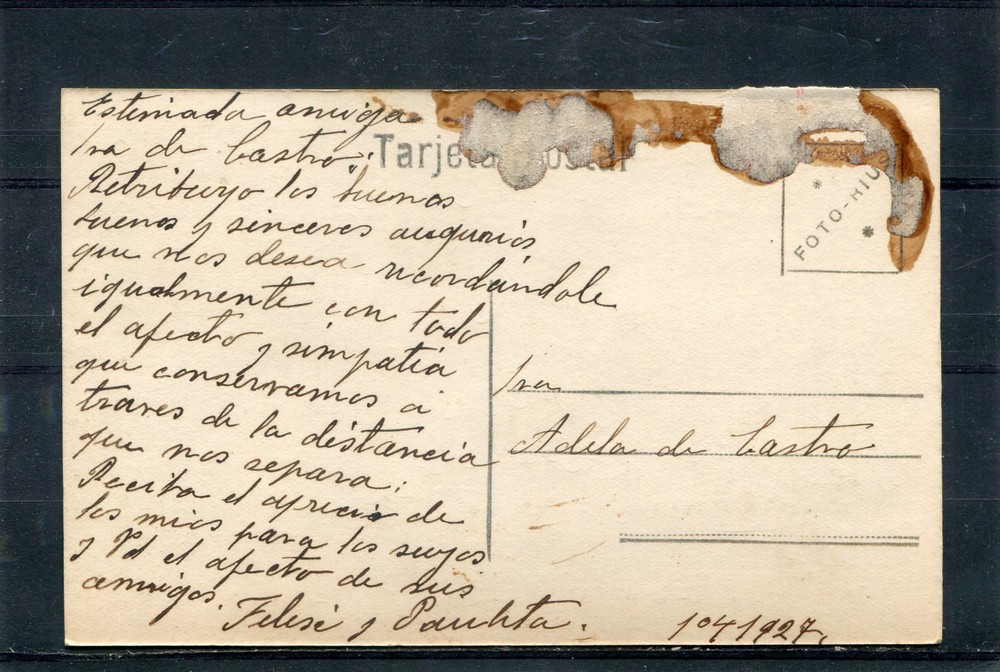 Estimada amiga
Sra de Castro:
Retribuyo los buenos
buenos y sinceros augurios
que nos desea recordándole
igualmente con todo
el afecto y simpatía
que conservamos a
traves de la distancia
que nos separa.
Reciba el aprecio de
los mios para los suyos
y Vd el afecto de sus
amigos.
y Paulita.
1041927.
Tarjeta Postal
FOTO-RIU
Sra
Adela de Castro